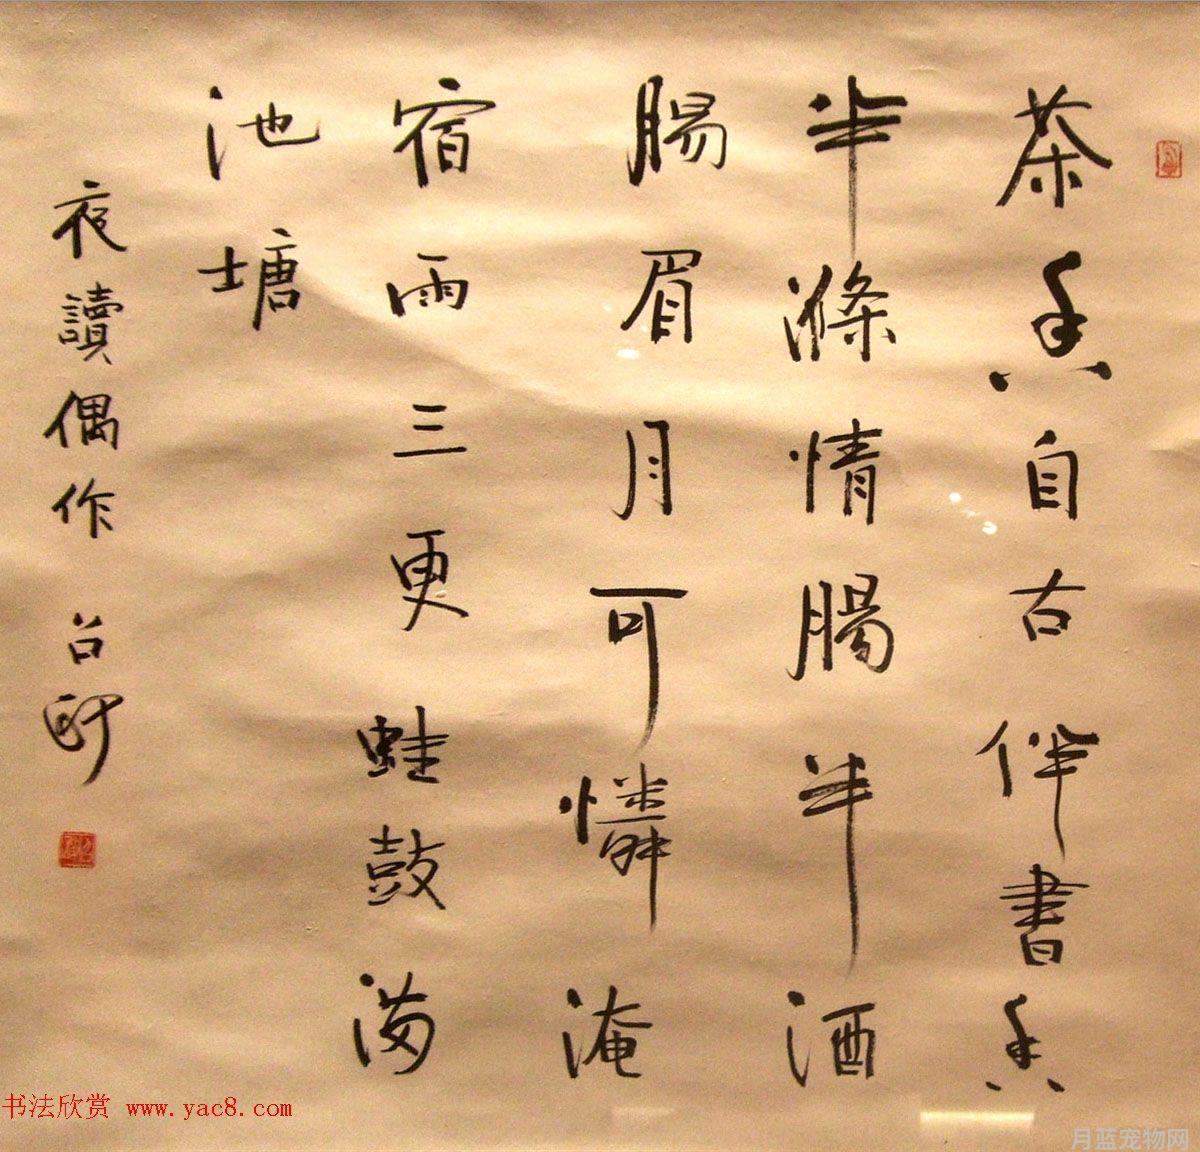 茶香自古伴書香
半滌情腸半酒
腸眉月可憐淹
宿雨三更蛙鼓满
池塘
夜讀偶作
书法欣赏 www.yac8.com
月蓝宠物网